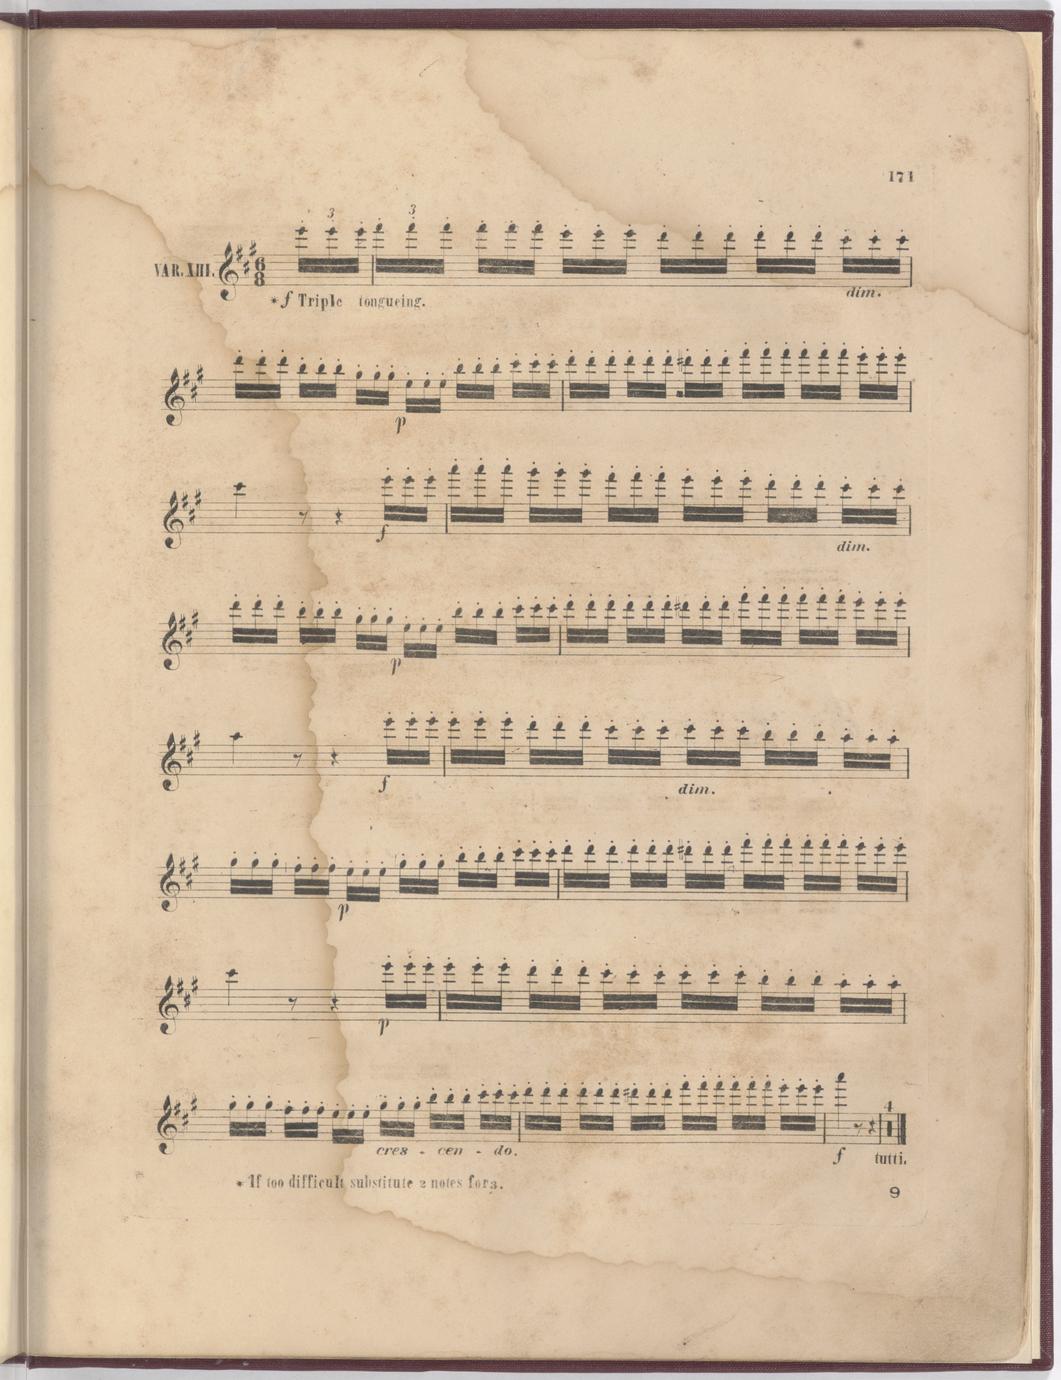 171
3 3
VAR. XIII.
6
8
* f Triple tongueing.
dim.
p
f
dim.
p
f
dim.
p
p
4
cres - cen - do.
f tutti.
* If too difficult substitute 2 notes for 3.
9